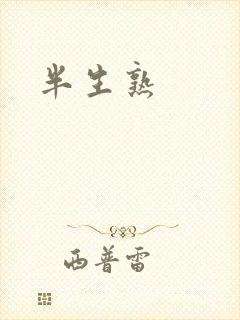 半生熟
西普雷